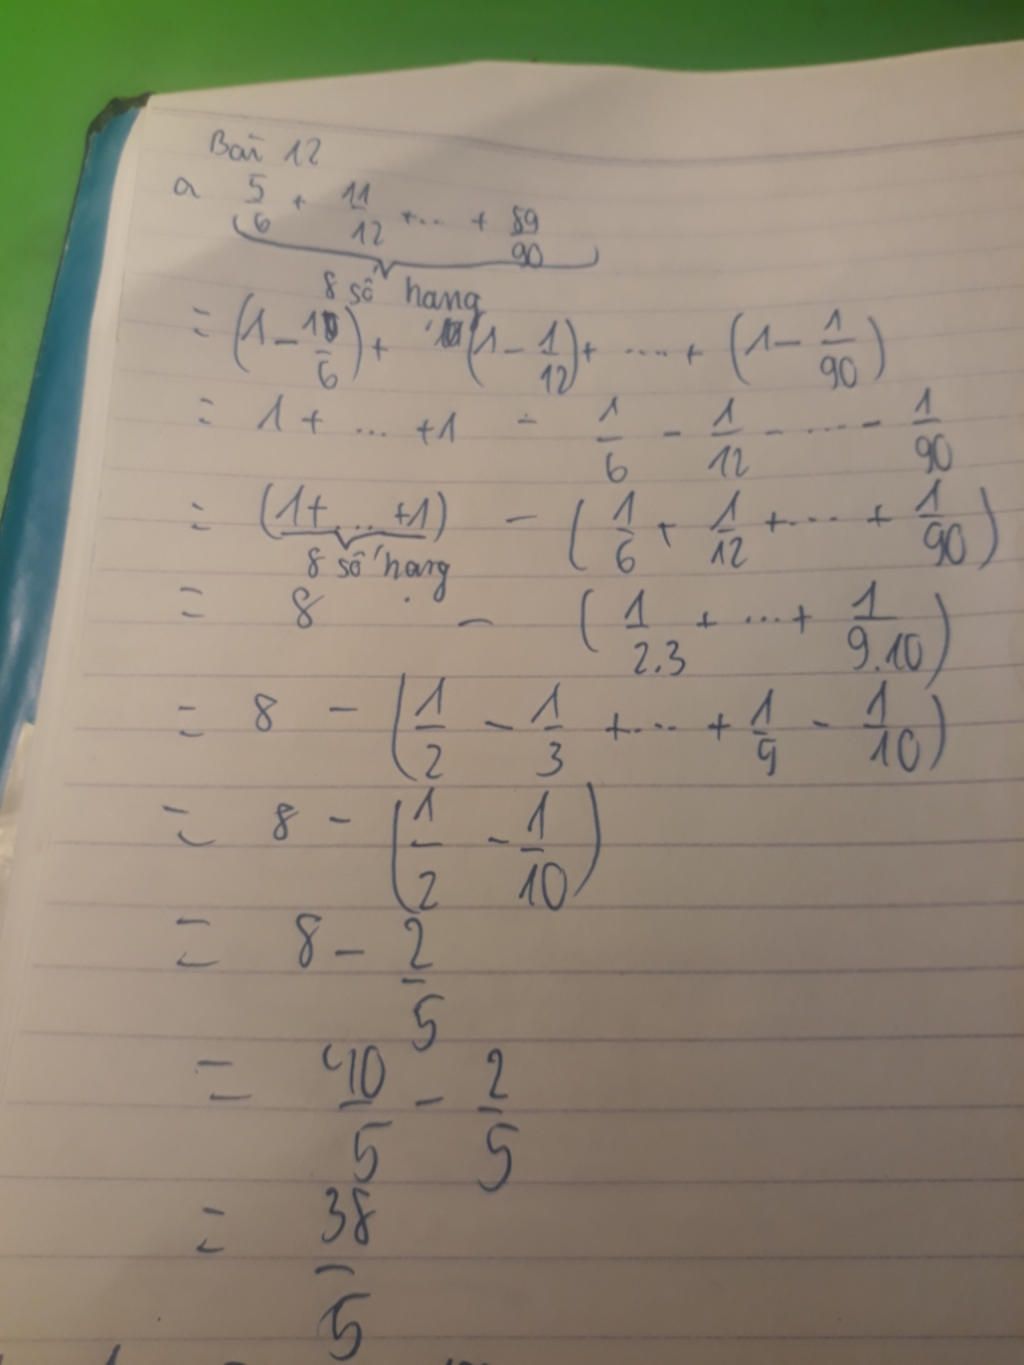 Bài 12
a 5/6 + 11/12 +... + 89/90
8 số hạng
= (1 - 1/6) + (1 - 1/12) + .... + (1 - 1/90)
= 1 + ... +1 - 1/6 - 1/12 - .... - 1/90
= (1+ ... +1) - (1/6 + 1/12 +.... + 1/90)
8 số hạng
= 8 - (1/2.3 + ...+ 1/9.10)
= 8 - (1/2 - 1/3 +... + 1/9 - 1/10)
= 8 - (1/2 - 1/10)
= 8 - 2/5
= 40/5 - 2/5
= 38/5